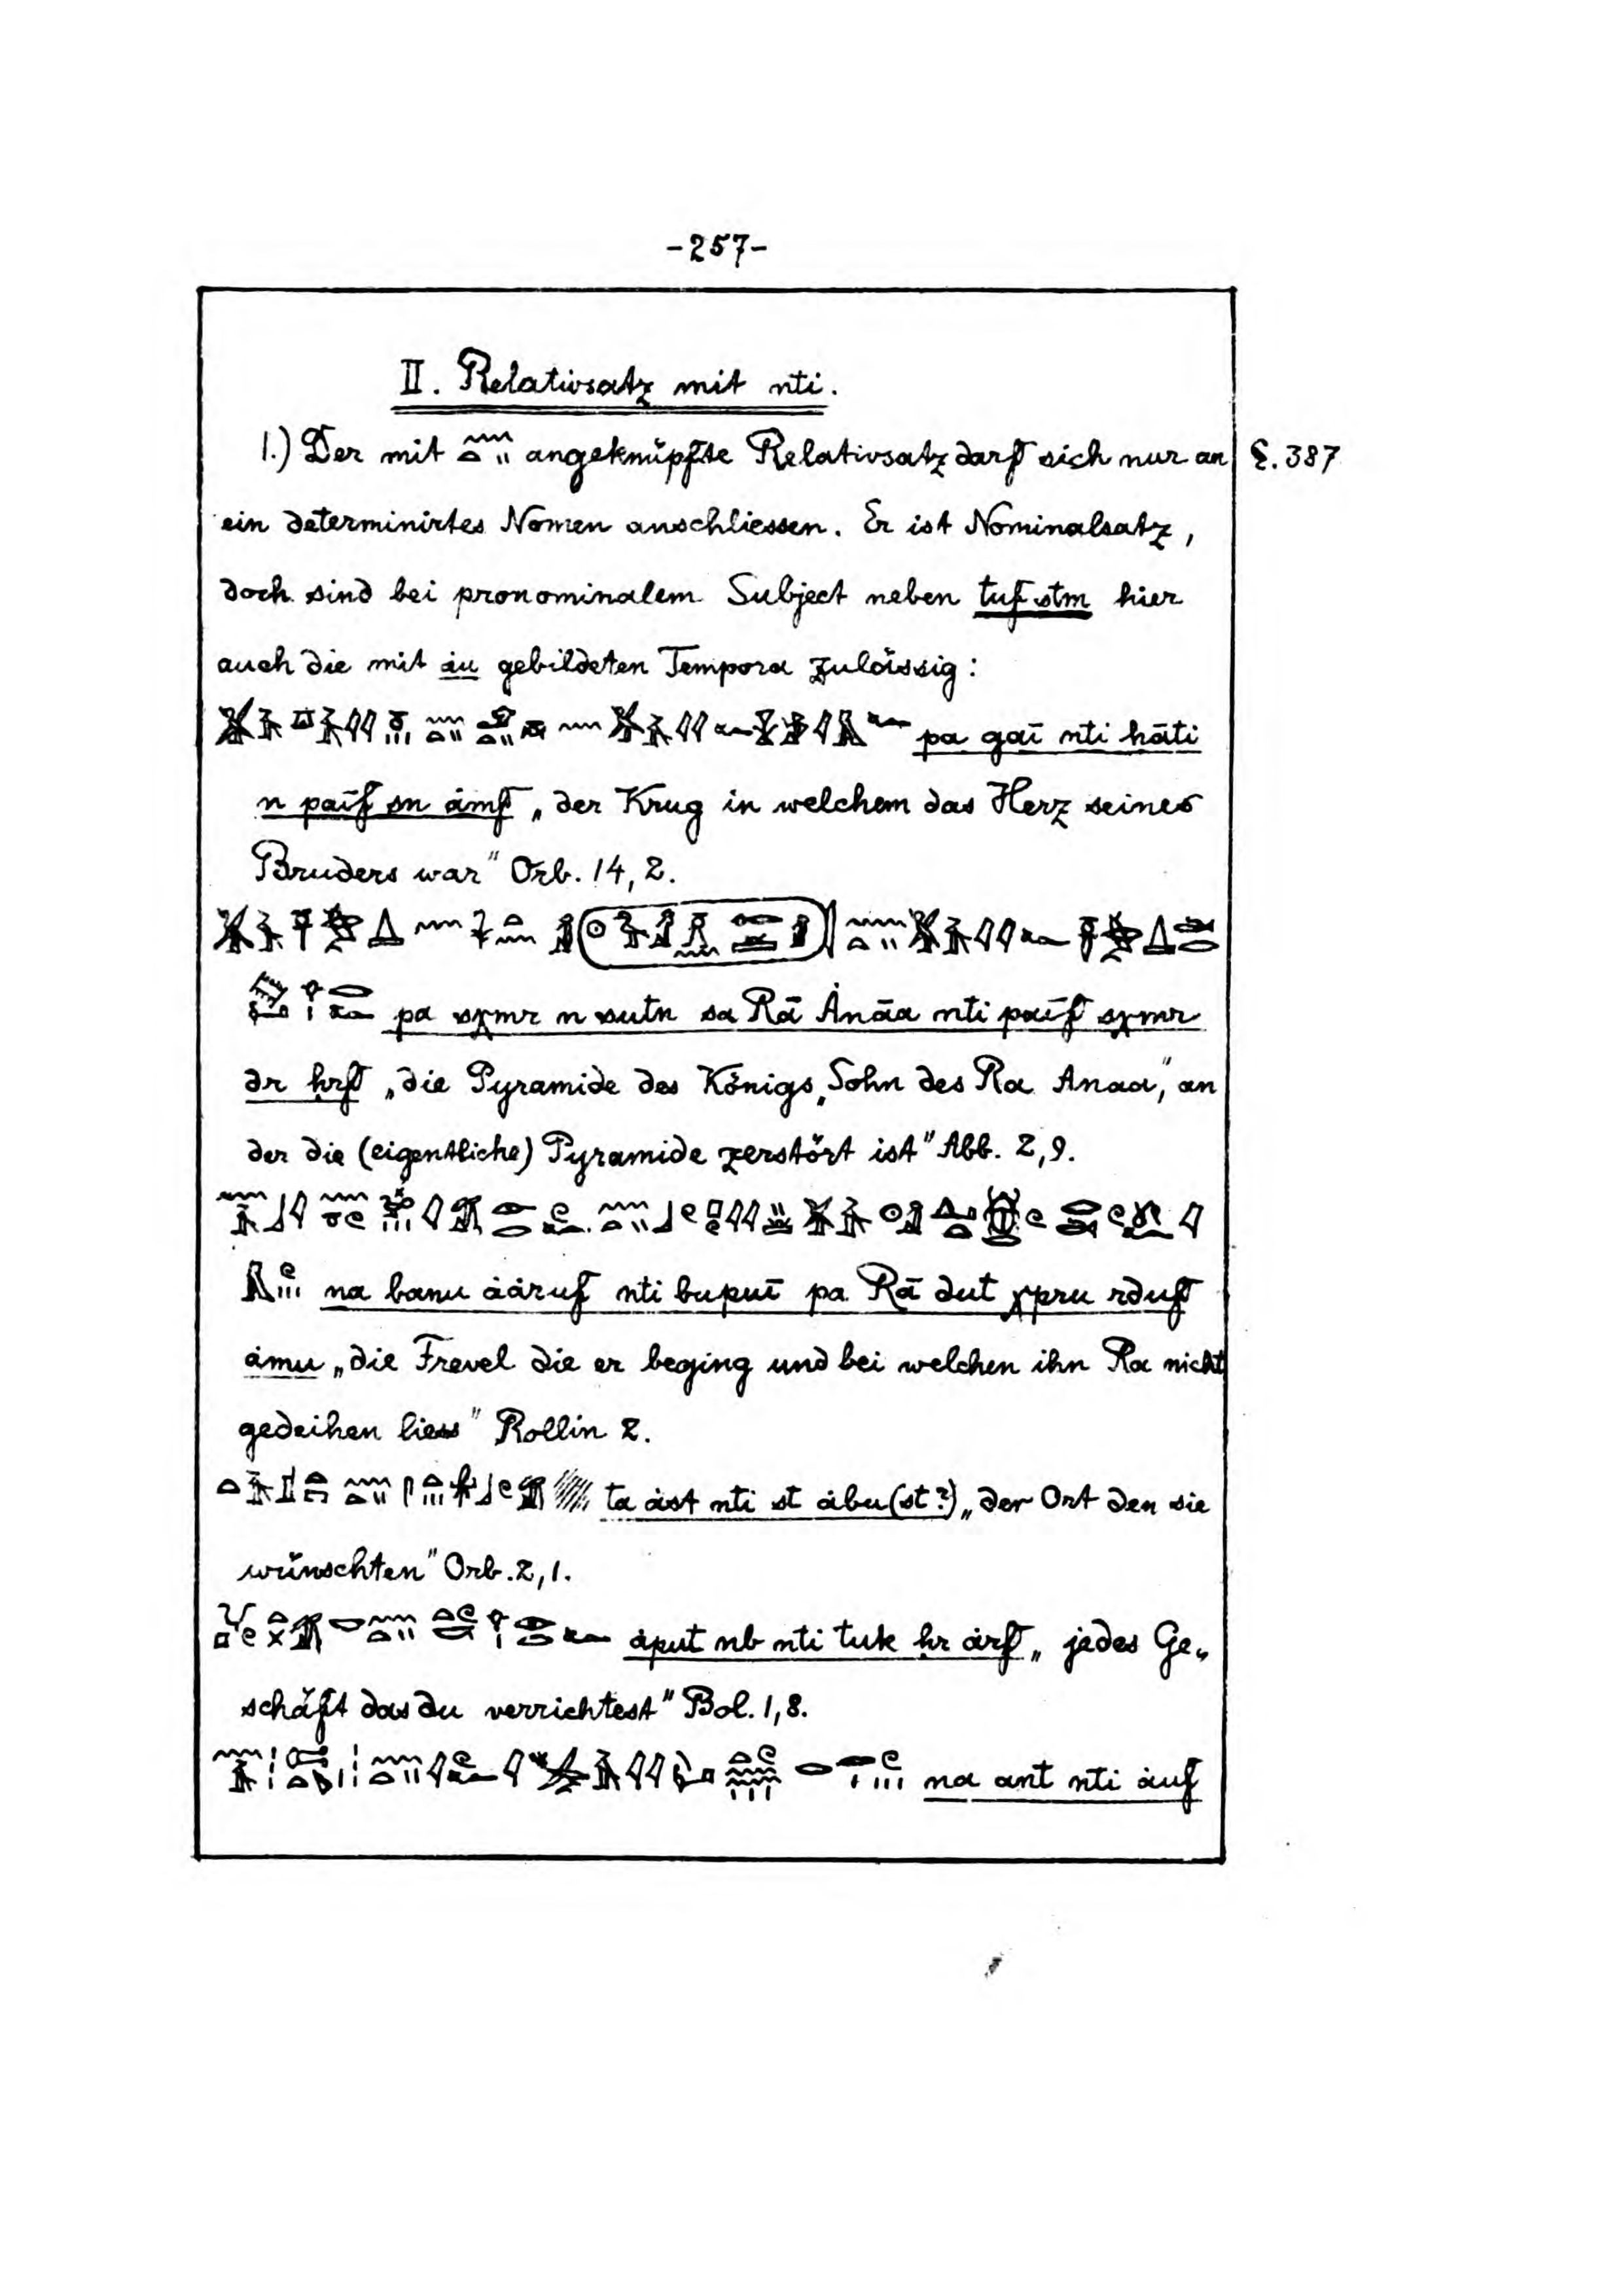 -257-
II. Relativsatz mit nti.
1.) Der mit angeknüpfte Relativsatz darf sich nur an §. 387
ein determinirtes Nomen anschliessen. Er ist Nominalsatz,
doch sind bei pronominalem Subject neben tuf stm hier
auch die mit ȧu gebildeten Tempora zulässig:
pa gaī nti hāti
n paīf sn ȧmf „der Krug in welchem das Herz seines
Bruders war" Orb. 14, 2.
pa sχmr n sutn sa Rā Ȧnāa nti paīf sχmr
dr ḥrf „die Pyramide des Königs „Sohn des Ra Anaa", an
der die (eigentliche) Pyramide zerstört ist" Abb. 2, 9.
na banu ȧȧruf nti bupuī pa Rā dut χpru rduf
ȧmu „die Frevel die er beging und bei welchen ihn Ra nicht
gedeihen liess" Rollin 2.
ta ȧst nti st ȧbu(st?) „der Ort den sie
wünschten" Orb. 2, 1.
ȧput nb nti tuk ḥr ȧrf „jedes Ge„
schäft das du verrichtest" Bol. 1, 8.
na ant nti ȧuf